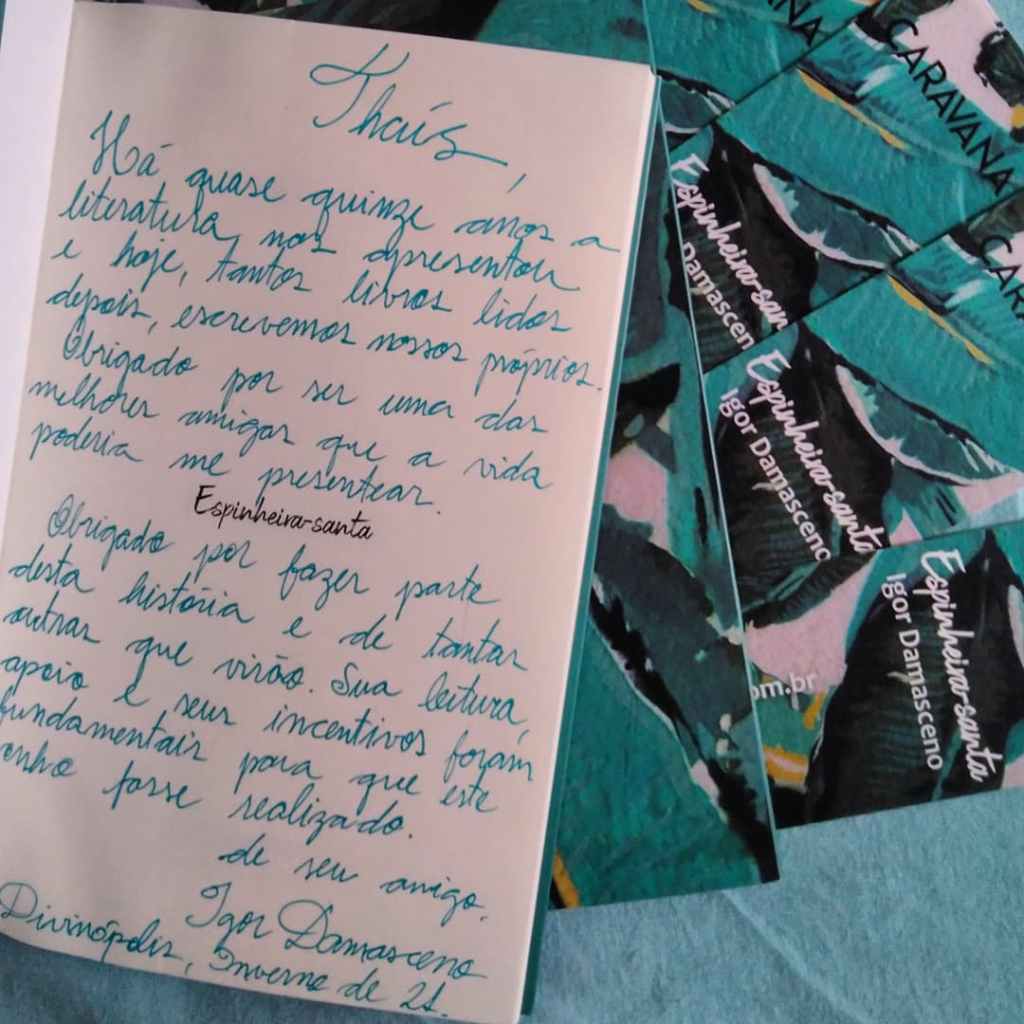 Thaís,
Há quase quinze anos a
literatura nos apresentou
e hoje, tantos livros lidos
depois, escrevemos nossos próprios.
Obrigado por ser uma das
melhores amigas que a vida
poderia me presentear.
Espinheira-santa
Obrigado por fazer parte
desta história e de tantas
outras que virão. Sua leitura,
apoio e seus incentivos foram
fundamentais para que este
onho fosse realizado.
de seu amigo.
Igor Damasceno
Divinópolis, Inverno de 21.
ANA
CARAVANA
CARA
Espinheira-san
Damascen
Espinheira-santa
Igor Damasceno
om.br
Espinheira-santa
Igor Damasceno